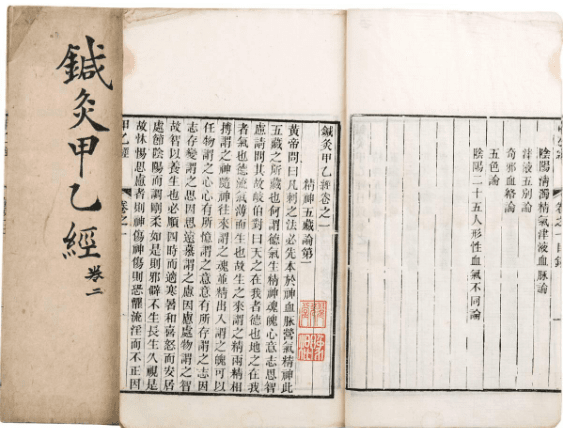 鍼灸甲乙經
卷二
卷之一 目錄
陰陽清濁精氣津液血脈論
津液五別論
奇邪血絡論
五色論
陰陽二十五人形性血氣不同論
鍼灸甲乙經卷之一
精神五藏論第一
黃帝問曰凡刺之法必先本於神血脈營氣精神此
五藏之所藏也何謂德氣生精神魂魄心意志思智
慮請問其故岐伯對曰天之在我者德也地之在我
者氣也德流氣薄而生也故生之來謂之精兩精相
搏謂之神隨神往來謂之魂並精出入謂之魄可以
任物謂之心心有所憶謂之意意有所存謂之志因
志存變謂之思因思遠慕謂之慮因慮處物謂之智
故智以養生也必順四時而適寒暑和喜怒而安居
處節陰陽而調剛柔如是則邪僻不生長生久視是
故怵惕思慮者則神傷神傷則恐懼流淫而不正因
甲乙經 卷之一